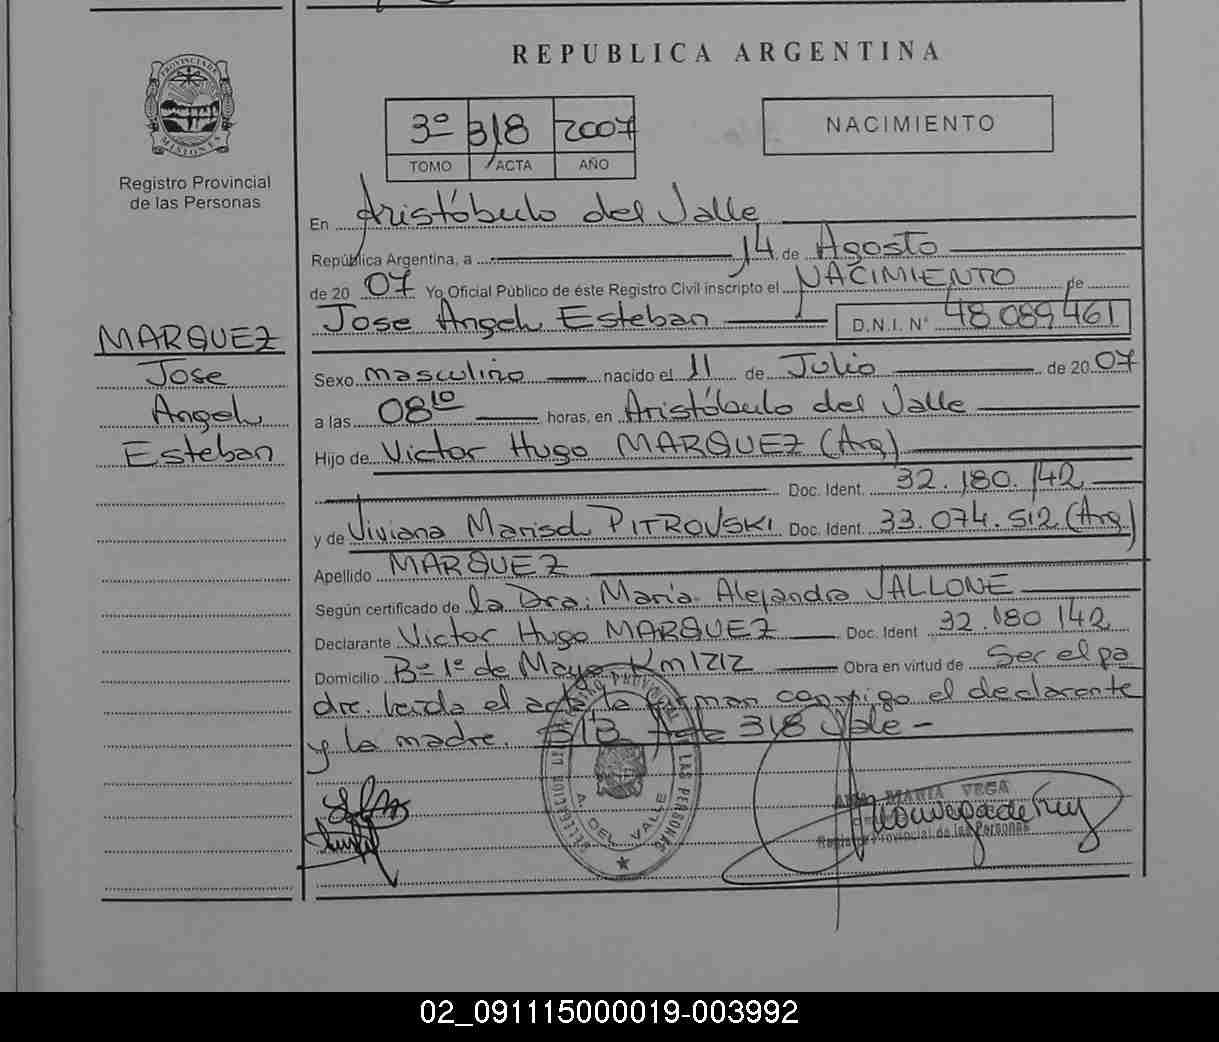 REPUBLICA ARGENTINA
PROVINCIA DE
MISIONES
Registro Provincial
de las Personas
3º 318 2007
TOMO ACTA AÑO
NACIMIENTO
En Aristóbulo del Valle
República Argentina, a 14 de Agosto
de 2007 Yo Oficial Público de éste Registro Civil inscripto el NACIMIENTO de
Jose Angel Esteban D.N.I. Nº 48089461
MARQUEZ
Jose
Angel
Esteban
Sexo masculino nacido el 11 de Julio de 2007
a las 08 10 horas, en Aristóbulo del Valle
Hijo de Victor Hugo MARQUEZ (Arg)
Doc. Ident. 32.180.142
y de Viviana Marisol PITROVSKI Doc. Ident. 33.074.512 (Arg)
Apellido MARQUEZ
Según certificado de la Dra. Maria Alejandra VALLONE
Declarante Victor Hugo MARQUEZ Doc. Ident 32.180 142
Domicilio Bº 1º de Mayo Km 1212 Obra en virtud de Ser el pa
dre. leida el acta la firman conmigo el declarante
y la madre. S/B Acta 318 Vale -
REGISTRO PROVINCIAL DE LAS PERSONAS
DELEGACION
A. DEL VALLE
ANA MARIA VEGA
Registro Provincial de las Personas
02_091115000019-003992